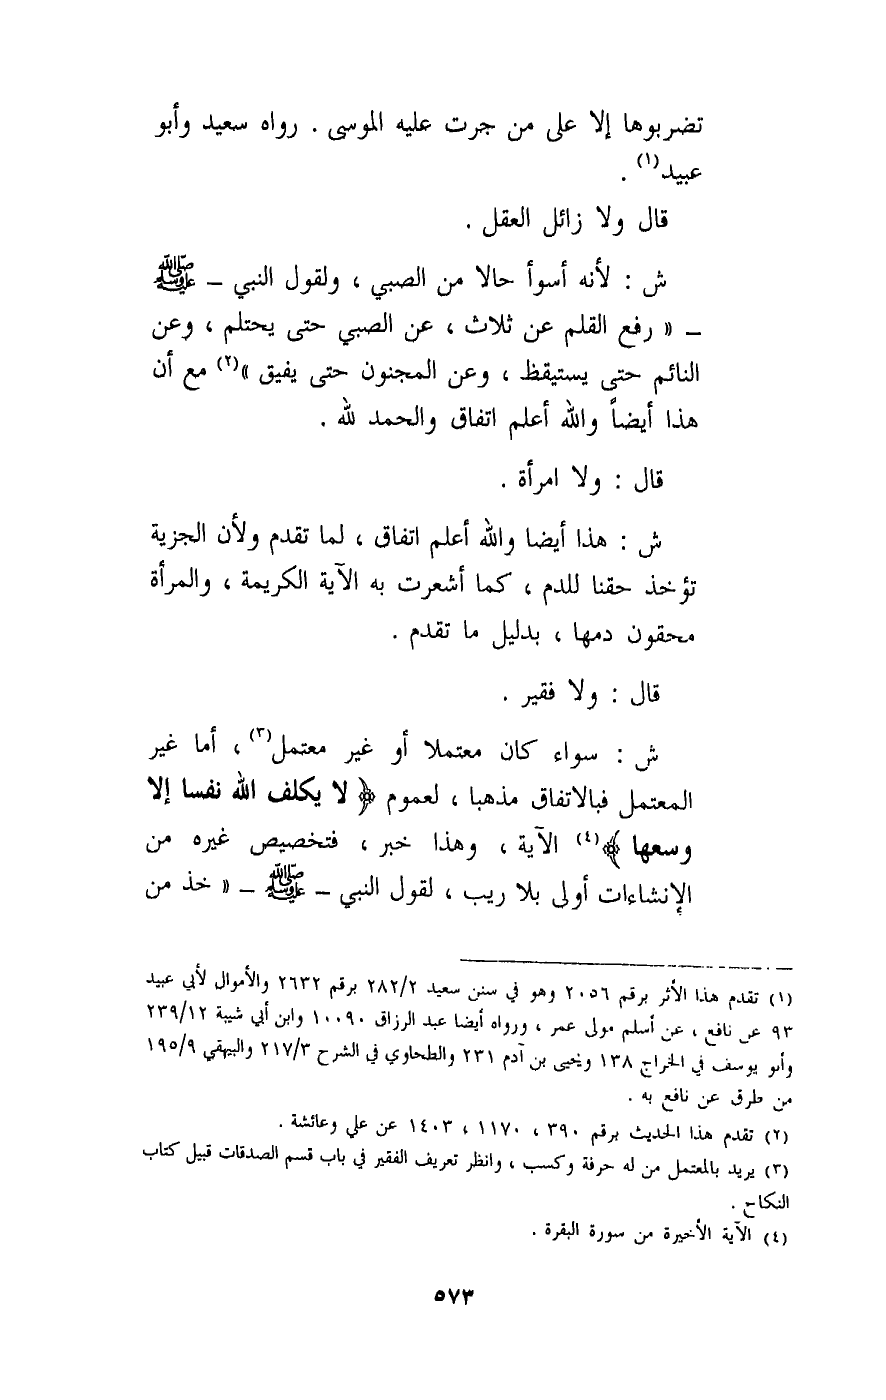 تضربوها إلا على من جرت عليه الموسى . رواه سعيد وأبو
عبيد(١) .
قال ولا زائل العقل .
ش : لأنه أسوأ حالا من الصبي ، ولقول النبي ــ ﷺ
ــ « رفع القلم عن ثلاث ، عن الصبي حتى يحتلم ، وعن
النائم حتى يستيقظ ، وعن المجنون حتى يفيق »(٢) مع أن
هذا أيضاً والله أعلم اتفاق والحمد لله .
قال : ولا امرأة .
ش : هذا أيضا والله أعلم اتفاق ، لما تقدم ولأن الجزية
تؤخذ حقنا للدم ، كما أشعرت به الآية الكريمة ، والمرأة
محقون دمها ، بدليل ما تقدم .
قال : ولا فقير .
ش : سواء كان معتملا أو غير معتمل(٣) ، أما غير
المعتمل فبالاتفاق مذهبا ، لعموم ﴿ لا يكلف الله نفسا إلا
وسعها ﴾(٤) الآية ، وهذا خبر ، فتخصيص غيره من
الإنشاءات أولى بلا ريب ، لقول النبي ــ ﷺ ــ « خذ من
(١) تقدم هذا الأثر برقم ٢٠٥٦ وهو في سنن سعيد ٢٨٢/٢ برقم ٢٦٣٢ والأموال لأبي عبيد
٩٣ عن نافع ، عن أسلم مولى عمر ، ورواه أيضا عبد الرزاق ١٠٠٩٠ وابن أبي شيبة ٢٣٩/١٢
وأبو يوسف في الخراج ١٣٨ ويحيى بن آدم ٢٣١ والطحاوي في الشرح ٢١٧/٣ والبيهقي ١٩٥/٩
من طرق عن نافع به .
(٢) تقدم هذا الحديث برقم ٣٩٠ ، ١١٧٠ ، ١٤٠٣ عن علي وعائشة .
(٣) يريد بالمعتمل من له حرفة وكسب ، وانظر تعريف الفقير في باب قسم الصدقات قبيل كتاب
النكاح .
(٤) الآية الأخيرة من سورة البقرة .
٥٧٣